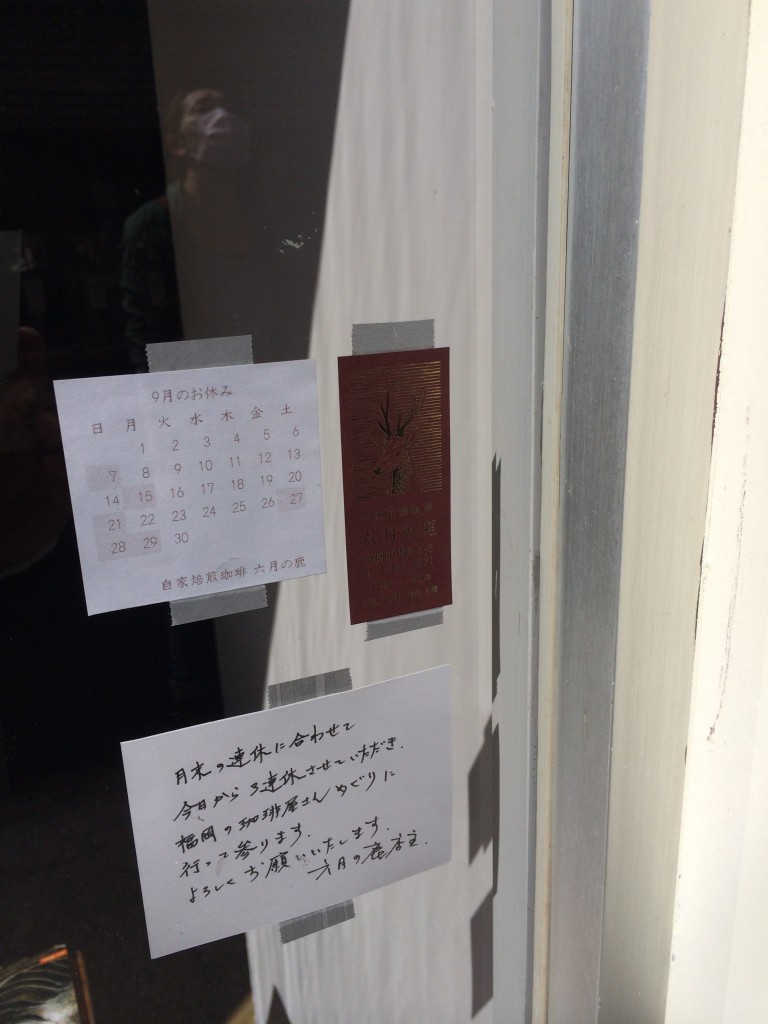 9月のお休み
日 月 火 水 木 金 土
1 2 3 4 5 6
7 8 9 10 11 12 13
14 15 16 17 18 19 20
21 22 23 24 25 26 27
28 29 30
自家焙煎珈琲 六月の鹿
六月の鹿
月末の連休に合わせて
今日から3連休させていただき、
福岡の珈琲屋さんめぐりに
行って参ります。
よろしくお願いいたします。
六月の鹿店主